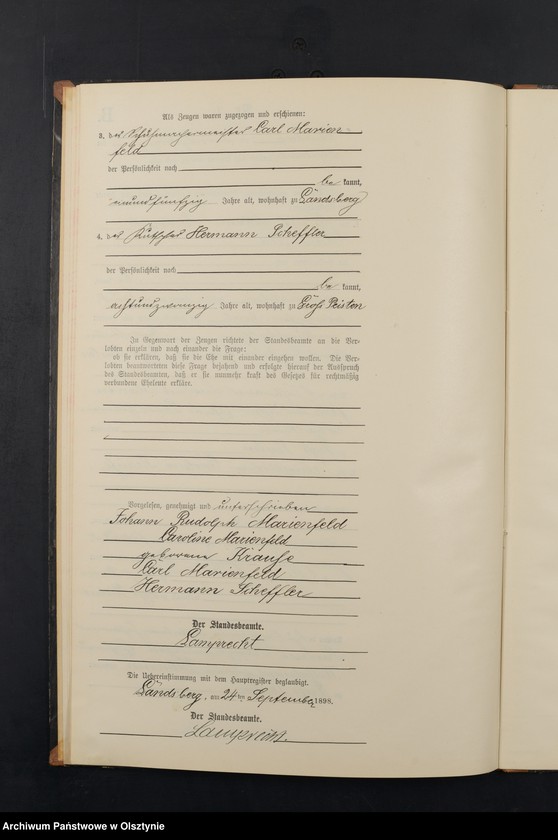 Als Zeugen waren zugezogen und erschienen:
3. der Schuhmachermeister Carl Marien
feld
der Persönlichkeit nach
be kannt,
neunundfünfzig Jahre alt, wohnhaft zu Landsberg
4. der Kutscher Hermann Scheffler
der Persönlichkeit nach
be kannt,
achtundzwanzig Jahre alt, wohnhaft zu Groß Peisten
In Gegenwart der Zeugen richtete der Standesbeamte an die Ver-
lobten einzeln und nach einander die Frage:
ob sie erklären, daß sie die Ehe mit einander eingehen wollen. Die Ver-
lobten beantworteten diese Frage bejahend und erfolgte hierauf der Ausspruch
des Standesbeamten, daß er sie nunmehr kraft des Gesetzes für rechtmäßig
verbundene Eheleute erkläre.
Vorgelesen, genehmigt und unterschrieben
Johann Rudolph Marienfeld
Caroline Marienfeld
geborene Krause
Carl Marienfeld
Hermann Scheffler
Der Standesbeamte.
Lamprecht
Die Uebereinstimmung mit dem Hauptregister beglaubigt.
Landsberg, am 24 ten September 1898.
Der Standesbeamte.
Lamprecht.
Archiwum Państwowe w Olsztynie